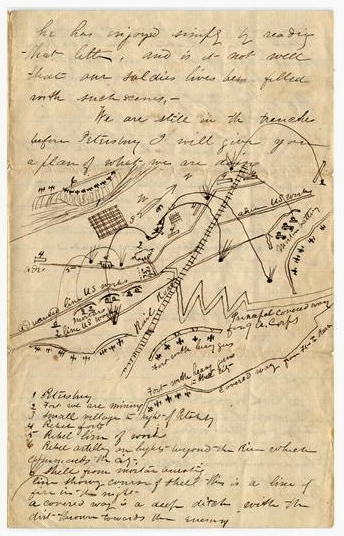 he has enjoyed simply by reading
that letter, and is it not well
that our soldies lives been filled
with such scenes,-
We are still in the trenches
before Petersburg I will give you
a plan of what we are doing
US works
line US works
mortars
2 line US works
Rail R
Principal covered way
for 9 A. Corps
Fort with heavy guns
Fort with heavy guns
Covered way from the
1 Petersburg
2 Fort we are mining
3 Small village to right of Petersburg
4 Rebel forts
5 Rebel line of works
6 Rebel artillery on heights beyond the River which
commands the City
Shells from mortar
line showing course of shell this is a line of
fire in the night
a covered way is a deep ditch with the
dirt thrown towards the enemy